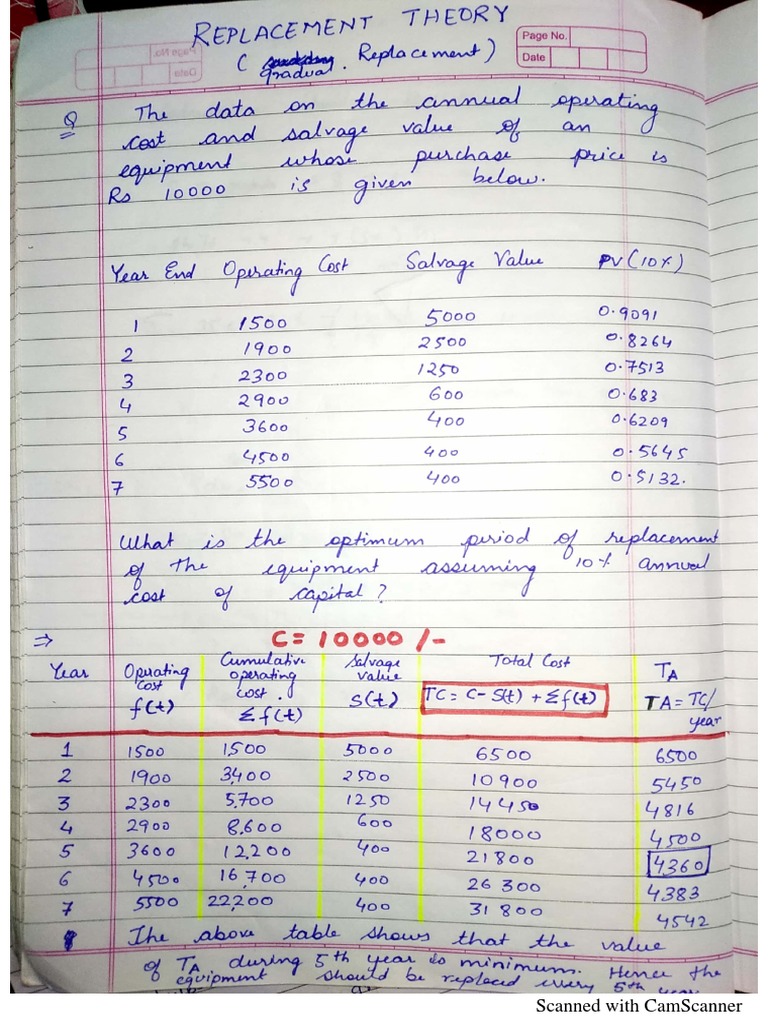 REPLACEMENT THEORY
( Gradual Replacement)
Page No.
Date
Q The data on the annual operating
cost and salvage value of an
equipment whose purchase price is
Rs 10000 is given below.
Year End Operating Cost Salvage Value PV(10%)
1 1500 5000 0.9091
2 1900 2500 0.8264
3 2300 1250 0.7513
4 2900 600 0.683
5 3600 400 0.6209
6 4500 400 0.5645
7 5500 400 0.5132.
What is the optimum period of replacement
of the equipment assuming 10% annual
cost of capital?
⇒ C = 10000 /-
Year Operating cost f(t) Cumulative operating cost. Σf(t) Salvage value S(t) Total Cost TC = C - S(t) + Σf(t) TA TA = TC/year
1 1500 1,500 5000 6500 6500
2 1900 3,400 2500 10900 5450
3 2300 5,700 1250 14450 4816
4 2900 8,600 600 18000 4500
5 3600 12,200 400 21800 4360
6 4500 16,700 400 26300 4383
7 5500 22,200 400 31800 4542
The above table shows that the value
of TA during 5th year is minimum. Hence the
equipment should be replaced every 5th year
Scanned with CamScanner